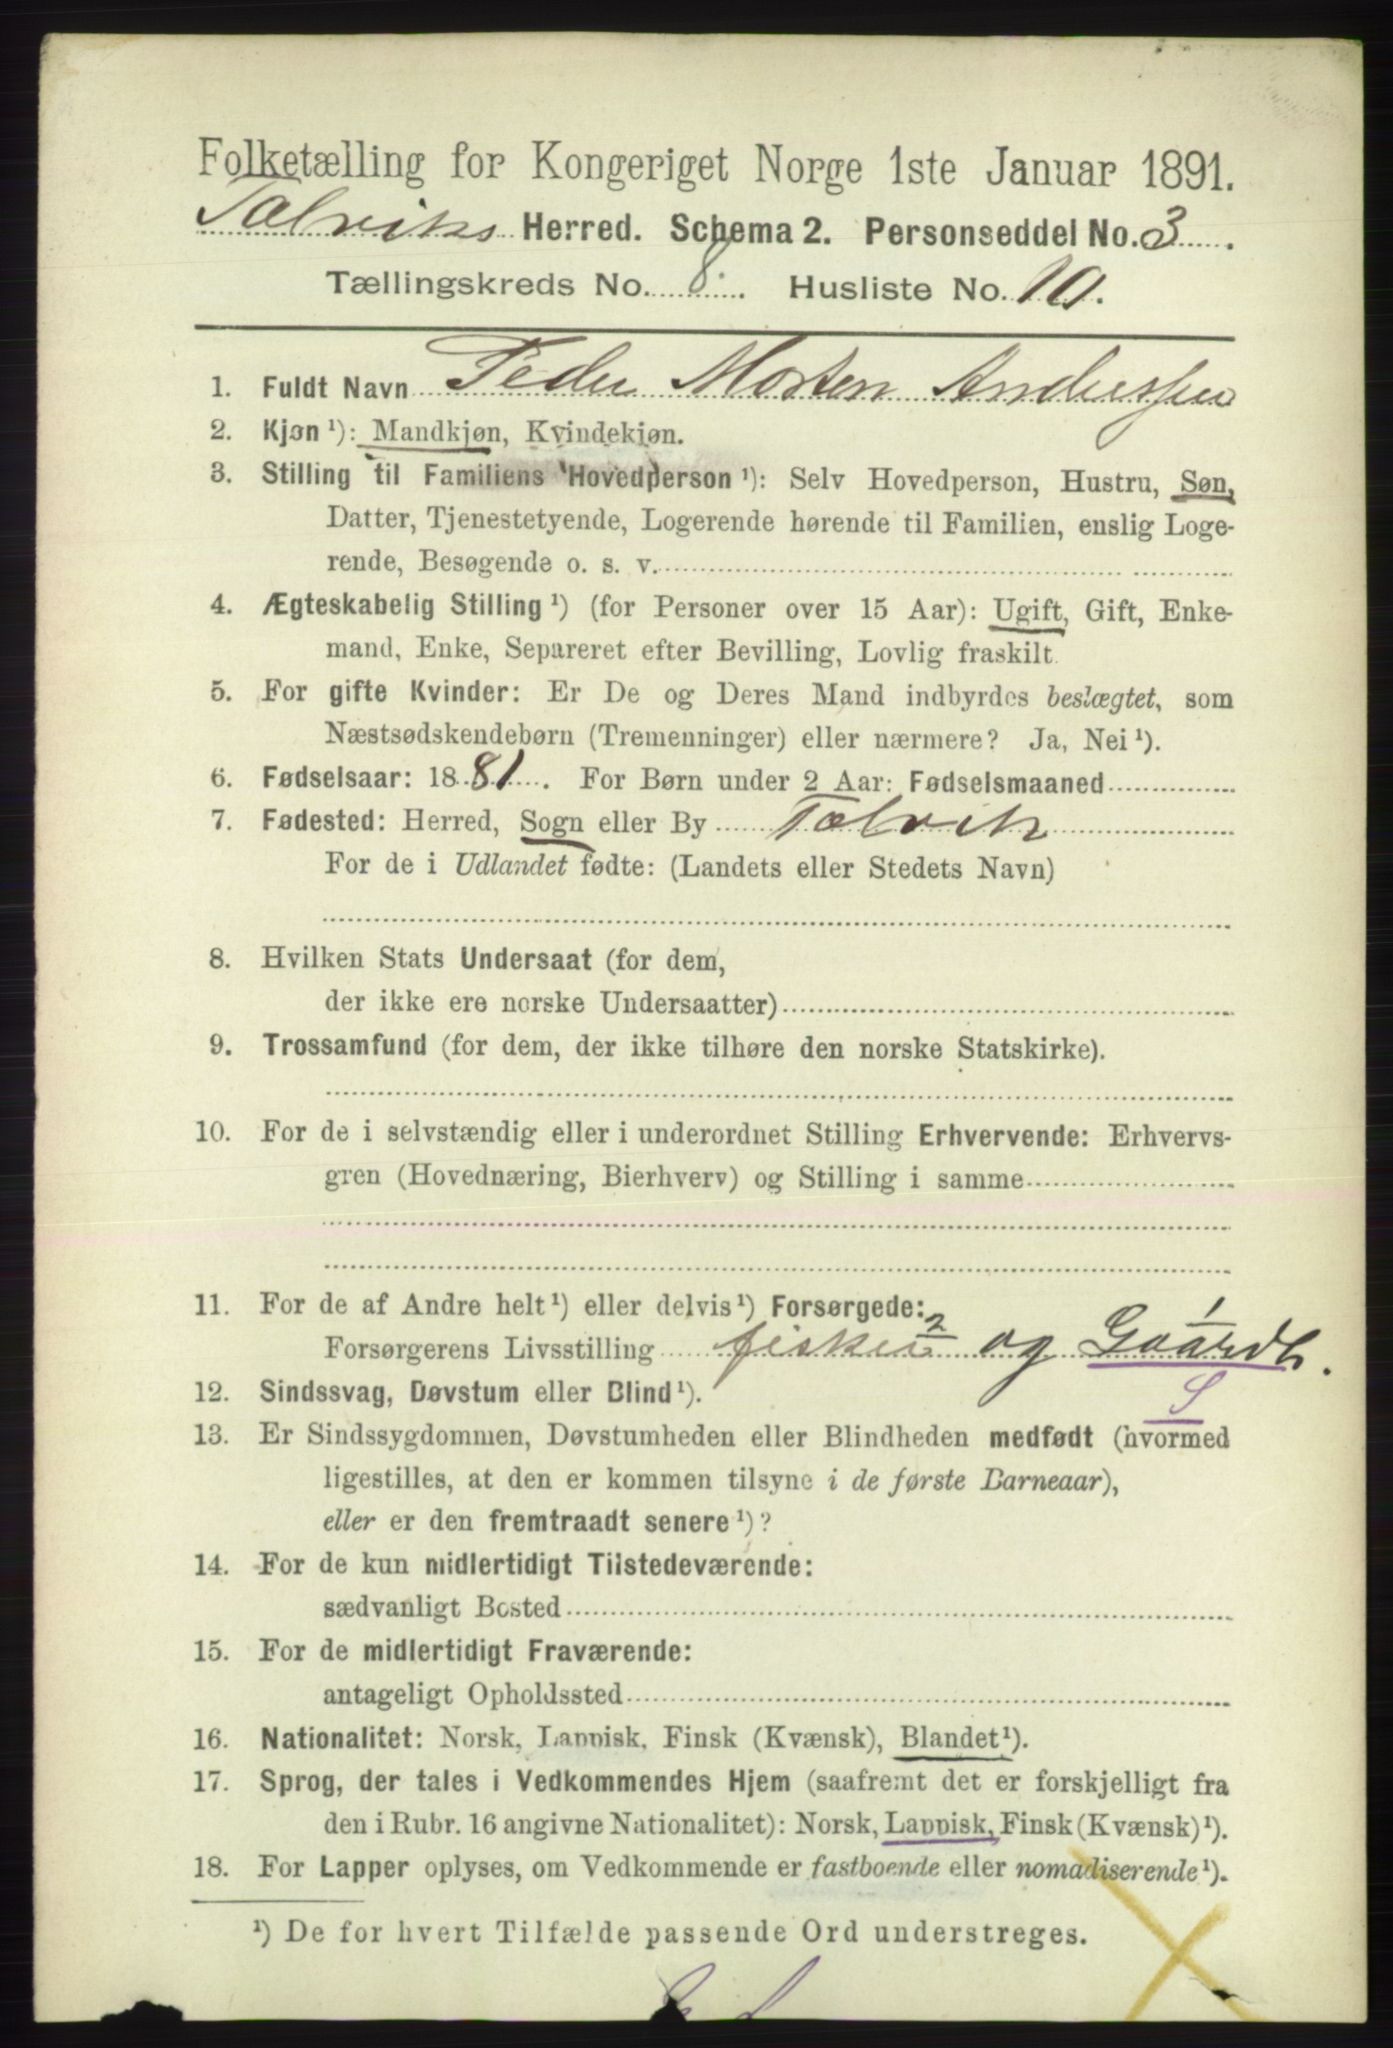 Folketælling for Kongeriget Norge 1ste Januar 1891.
Talviks Herred. Schema 2. Personseddel No. 3
Tællingskreds No. 8. Husliste No. 10.
1. Fuldt Navn Peder Morten Anderssen
2. Kjøn ¹): Mandkjøn, Kvindekjøn.
3. Stilling til Familiens Hovedperson ¹): Selv Hovedperson, Hustru, Søn,
Datter, Tjenestetyende, Logerende hørende til Familien, enslig Loge-
rende, Besøgende o. s. v.
4. Ægteskabelig Stilling ¹) (for Personer over 15 Aar): Ugift, Gift, Enke-
mand, Enke, Separeret efter Bevilling, Lovlig fraskilt.
5. For gifte Kvinder: Er De og Deres Mand indbyrdes beslægtet, som
Næstsødskendebørn (Tremenninger) eller nærmere? Ja, Nei ¹).
6. Fødselsaar: 1881. For Børn under 2 Aar: Fødselsmaaned
7. Fødested: Herred, Sogn eller By Talvik
For de i Udlandet fødte: (Landets eller Stedets Navn)
8. Hvilken Stats Undersaat (for dem,
der ikke ere norske Undersaatter)
9. Trossamfund (for dem, der ikke tilhøre den norske Statskirke).
10. For de i selvstændig eller i underordnet Stilling Erhvervende: Erhvervs-
gren (Hovednæring, Bierhverv) og Stilling i samme
11. For de af Andre helt ¹) eller delvis ¹) Forsørgede:
Forsørgerens Livsstilling fisker 2 og Gaardb. 1
12. Sindssvag, Døvstum eller Blind ¹). S
13. Er Sindssygdommen, Døvstumheden eller Blindheden medfødt (hvormed
ligestilles, at den er kommen tilsyne i de første Barneaar),
eller er den fremtraadt senere ¹)?
14. For de kun midlertidigt Tilstedeværende:
sædvanligt Bosted
15. For de midlertidigt Fraværende:
antageligt Opholdssted
16. Nationalitet: Norsk, Lappisk, Finsk (Kvænsk), Blandet ¹).
17. Sprog, der tales i Vedkommendes Hjem (saafremt det er forskjelligt fra
den i Rubr. 16 angivne Nationalitet): Norsk, Lappisk, Finsk (Kvænsk) ¹).
18. For Lapper oplyses, om Vedkommende er fastboende eller nomadiserende ¹).
¹) De for hvert Tilfælde passende Ord understreges.